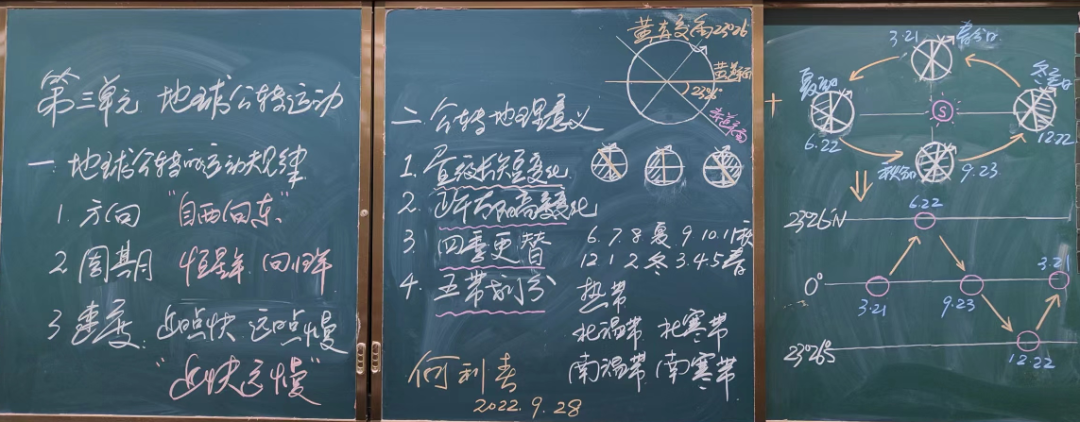 第三单元 地球公转运动
一 地球公转的运动规律
1. 方向 "自西向东"
2 周期 恒星年 回归年
3 速度: 近点快 远点慢
"近快远慢"
二 公转地理意义
1. 昼夜长短变化
2. 正午太阳高变化
3. 四季更替
6.7.8 夏 9 10.11 秋
12 1 2 冬 3.4.5 春
4. 五带划分
热带
北温带 北寒带
南温带 南寒带
何利春
2022.9.28
黄赤交角23°26
黄道面
23°26
赤道面
3.21 春分日
夏至日
6.22
S
冬至日
12.22
秋分日
9.23
23°26N
6.22
0°
3.21
9.23
3.21
23°26S
12.22